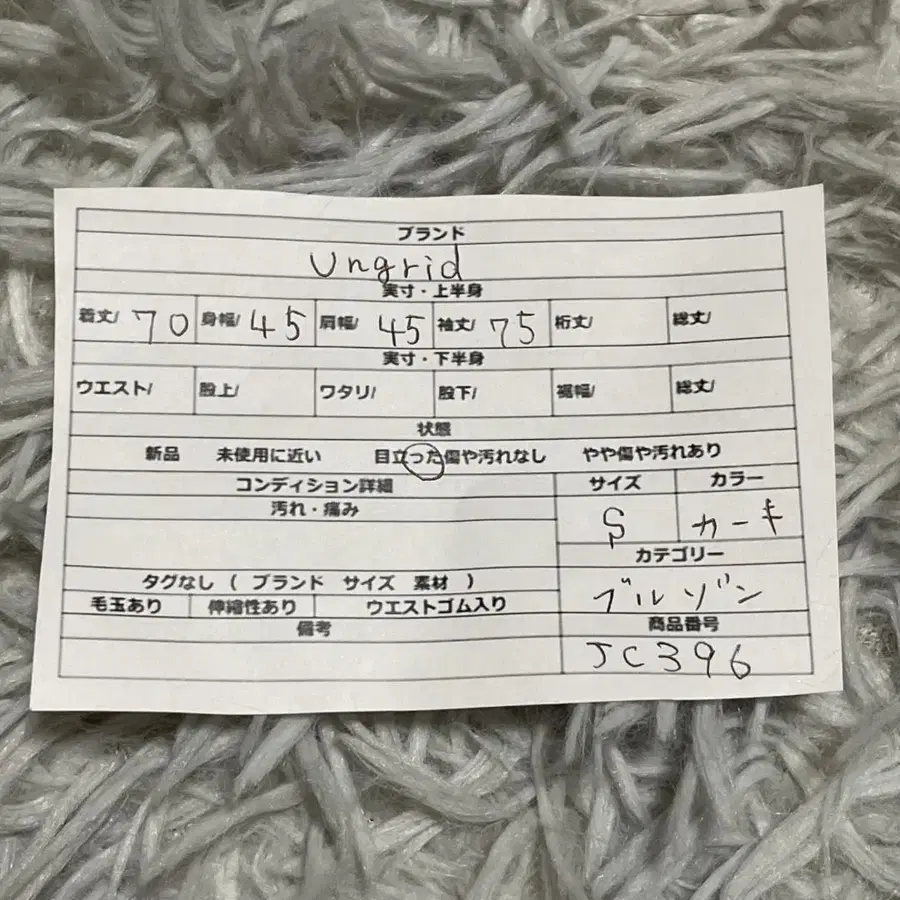 ブランド
Ungrid
実寸・上半身
着丈/ 70 身幅/ 45 肩幅/ 45 袖丈/ 75 裄丈/ 総丈/
実寸・下半身
ウエスト/ 股上/ ワタリ/ 股下/ 裾幅/ 総丈/
状態
新品 未使用に近い 目立った傷や汚れなし やや傷や汚れあり
コンディション詳細 サイズ カラー
汚れ・痛み S カーキ
カテゴリー
タグなし ( ブランド サイズ 素材 ) ブルゾン
毛玉あり 伸縮性あり ウエストゴム入り
備考 商品番号
JC396